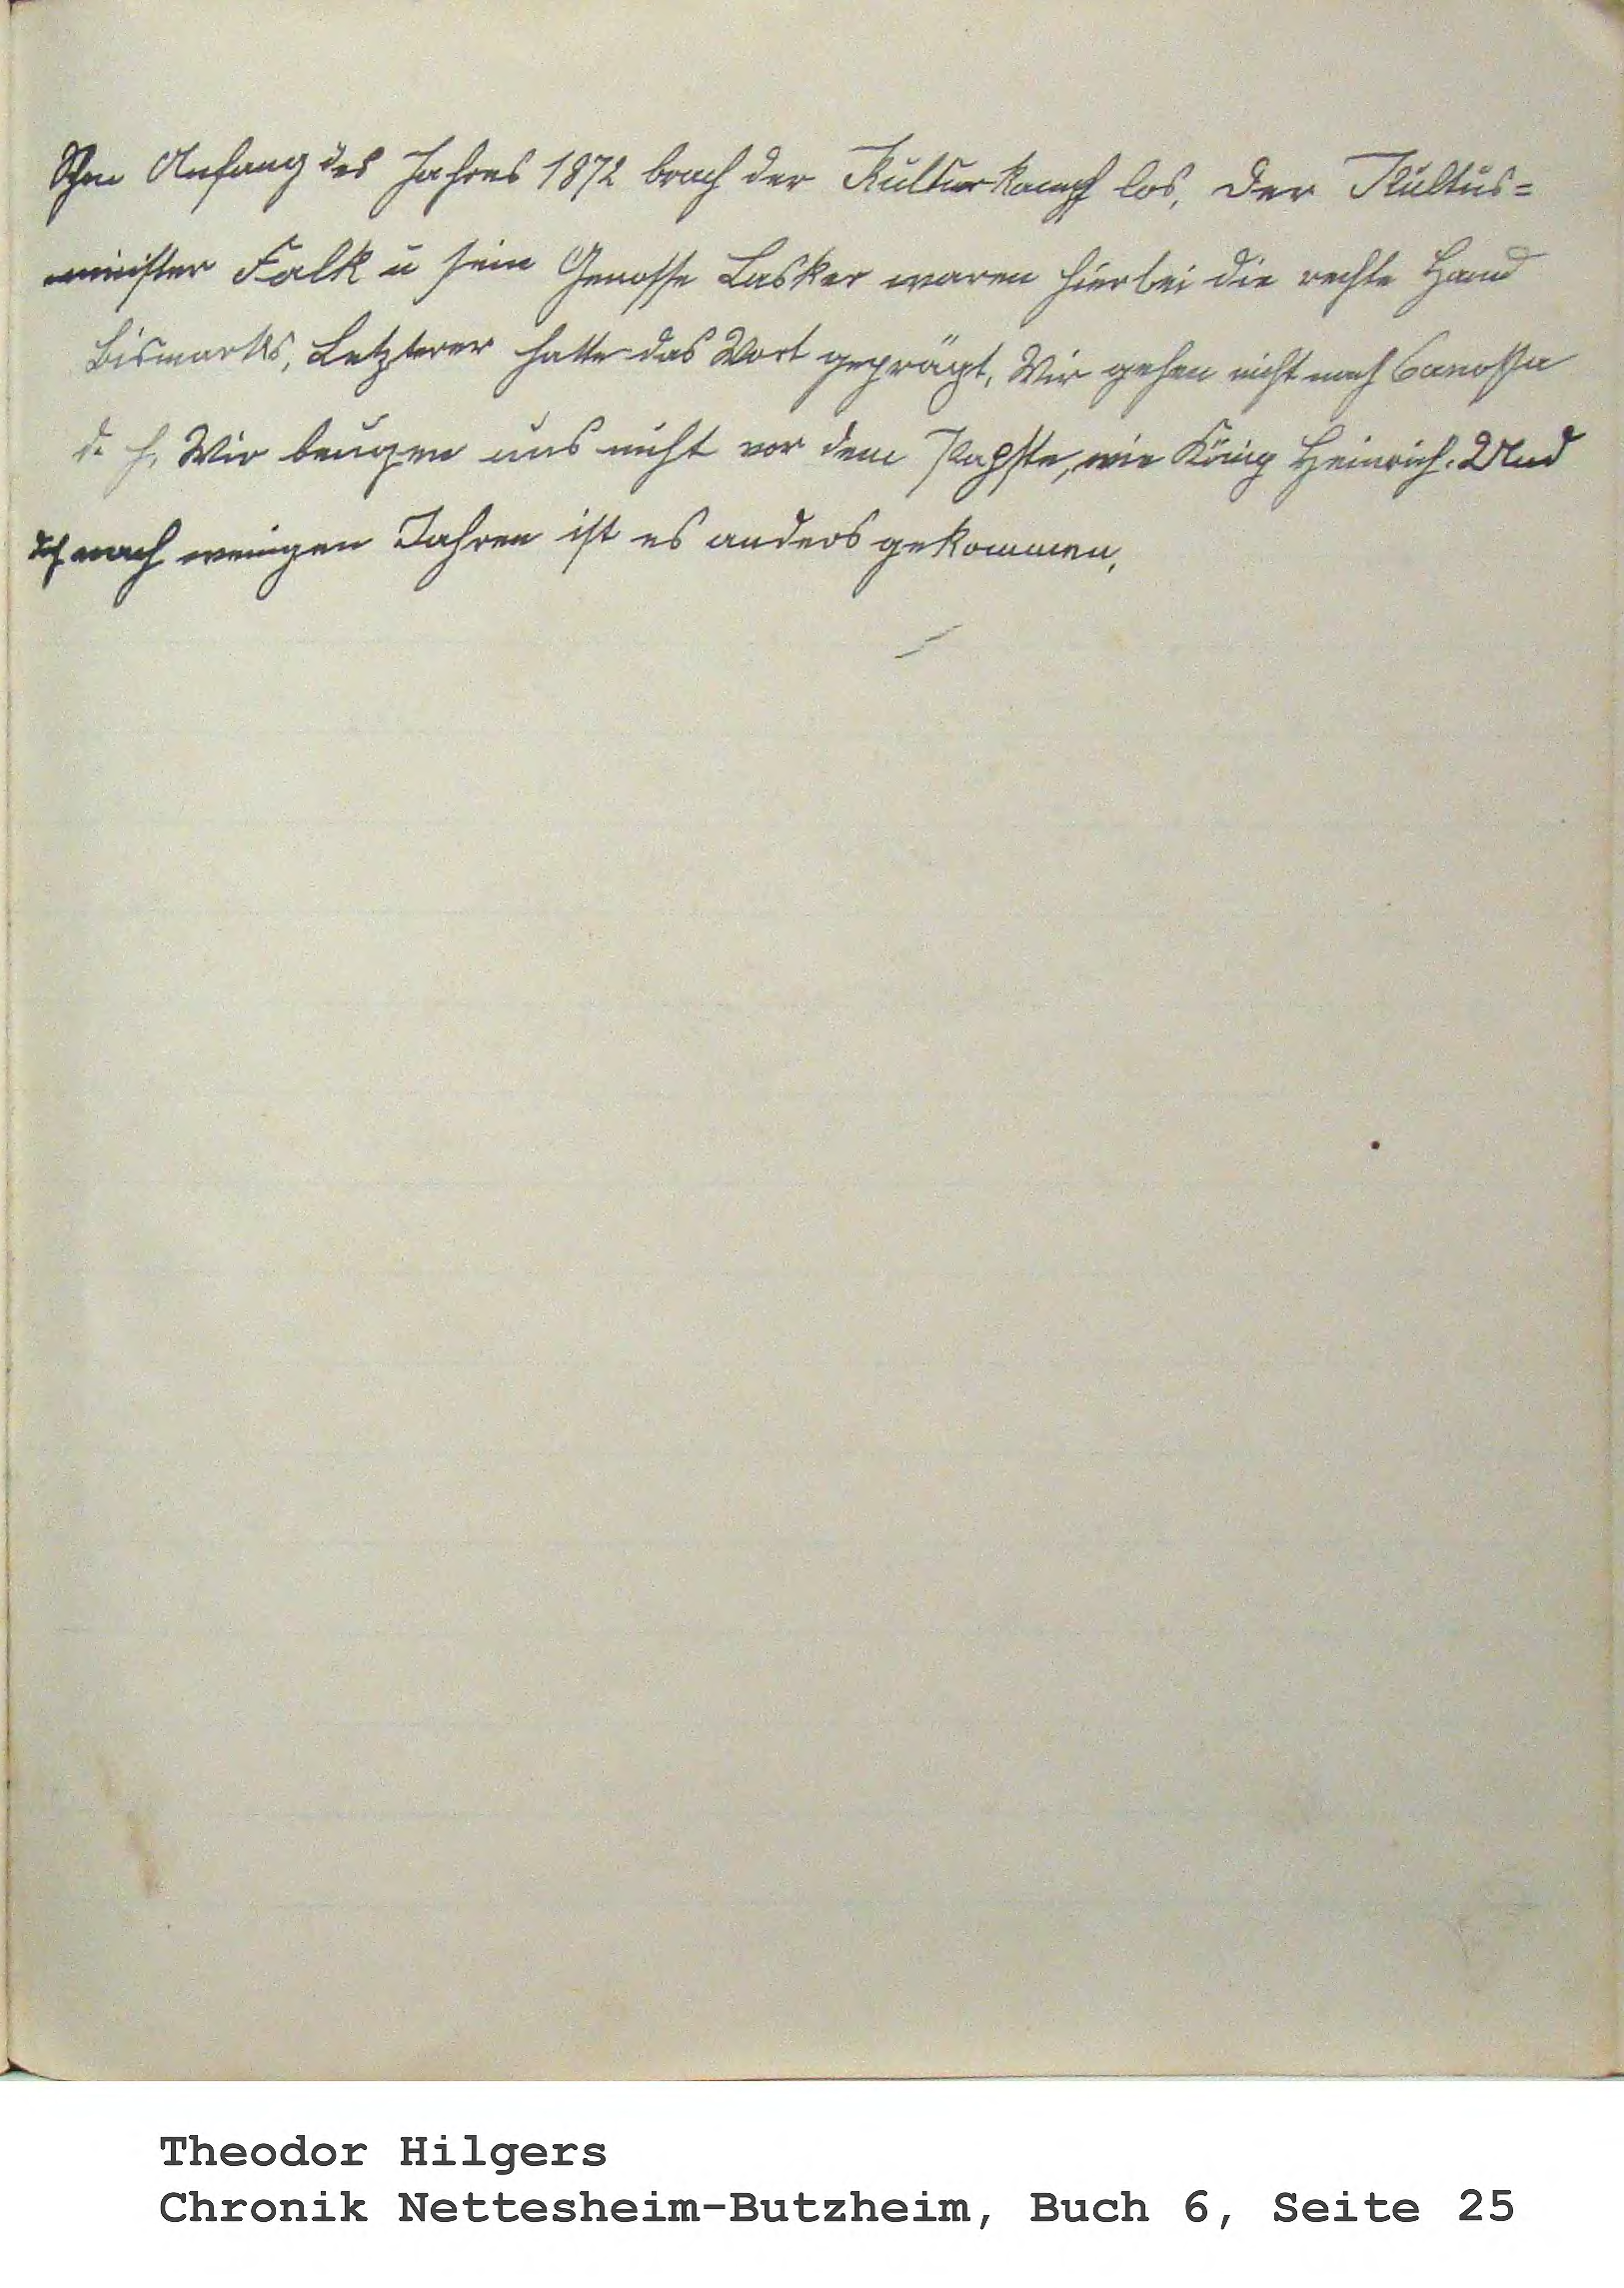 Schon Anfang des Jahres 1872 brach der Kulturkampf los, der Kultus=
minister Falk u sein Genosse Lasker waren hierbei die rechte Hand
Bismarks, Letzterer hatte das Wort geprägt, Wir gehen nicht nach Canossa
d. h, Wir beugen uns nicht vor dem Papste, wie König Heinrich. Und
doch nach wenigen Jahren ist es anders gekommen,
Theodor Hilgers
Chronik Nettesheim-Butzheim, Buch 6, Seite 25